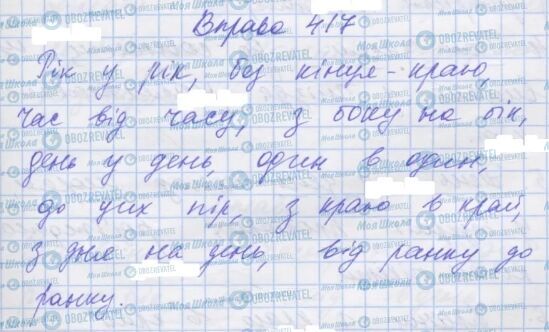 Вправа 417
Рік у рік, без кінця-краю,
час від часу, з боку на бік,
день у день, один в один,
до цих пір, з краю в край,
з дня на день, від ранку до
ранку.